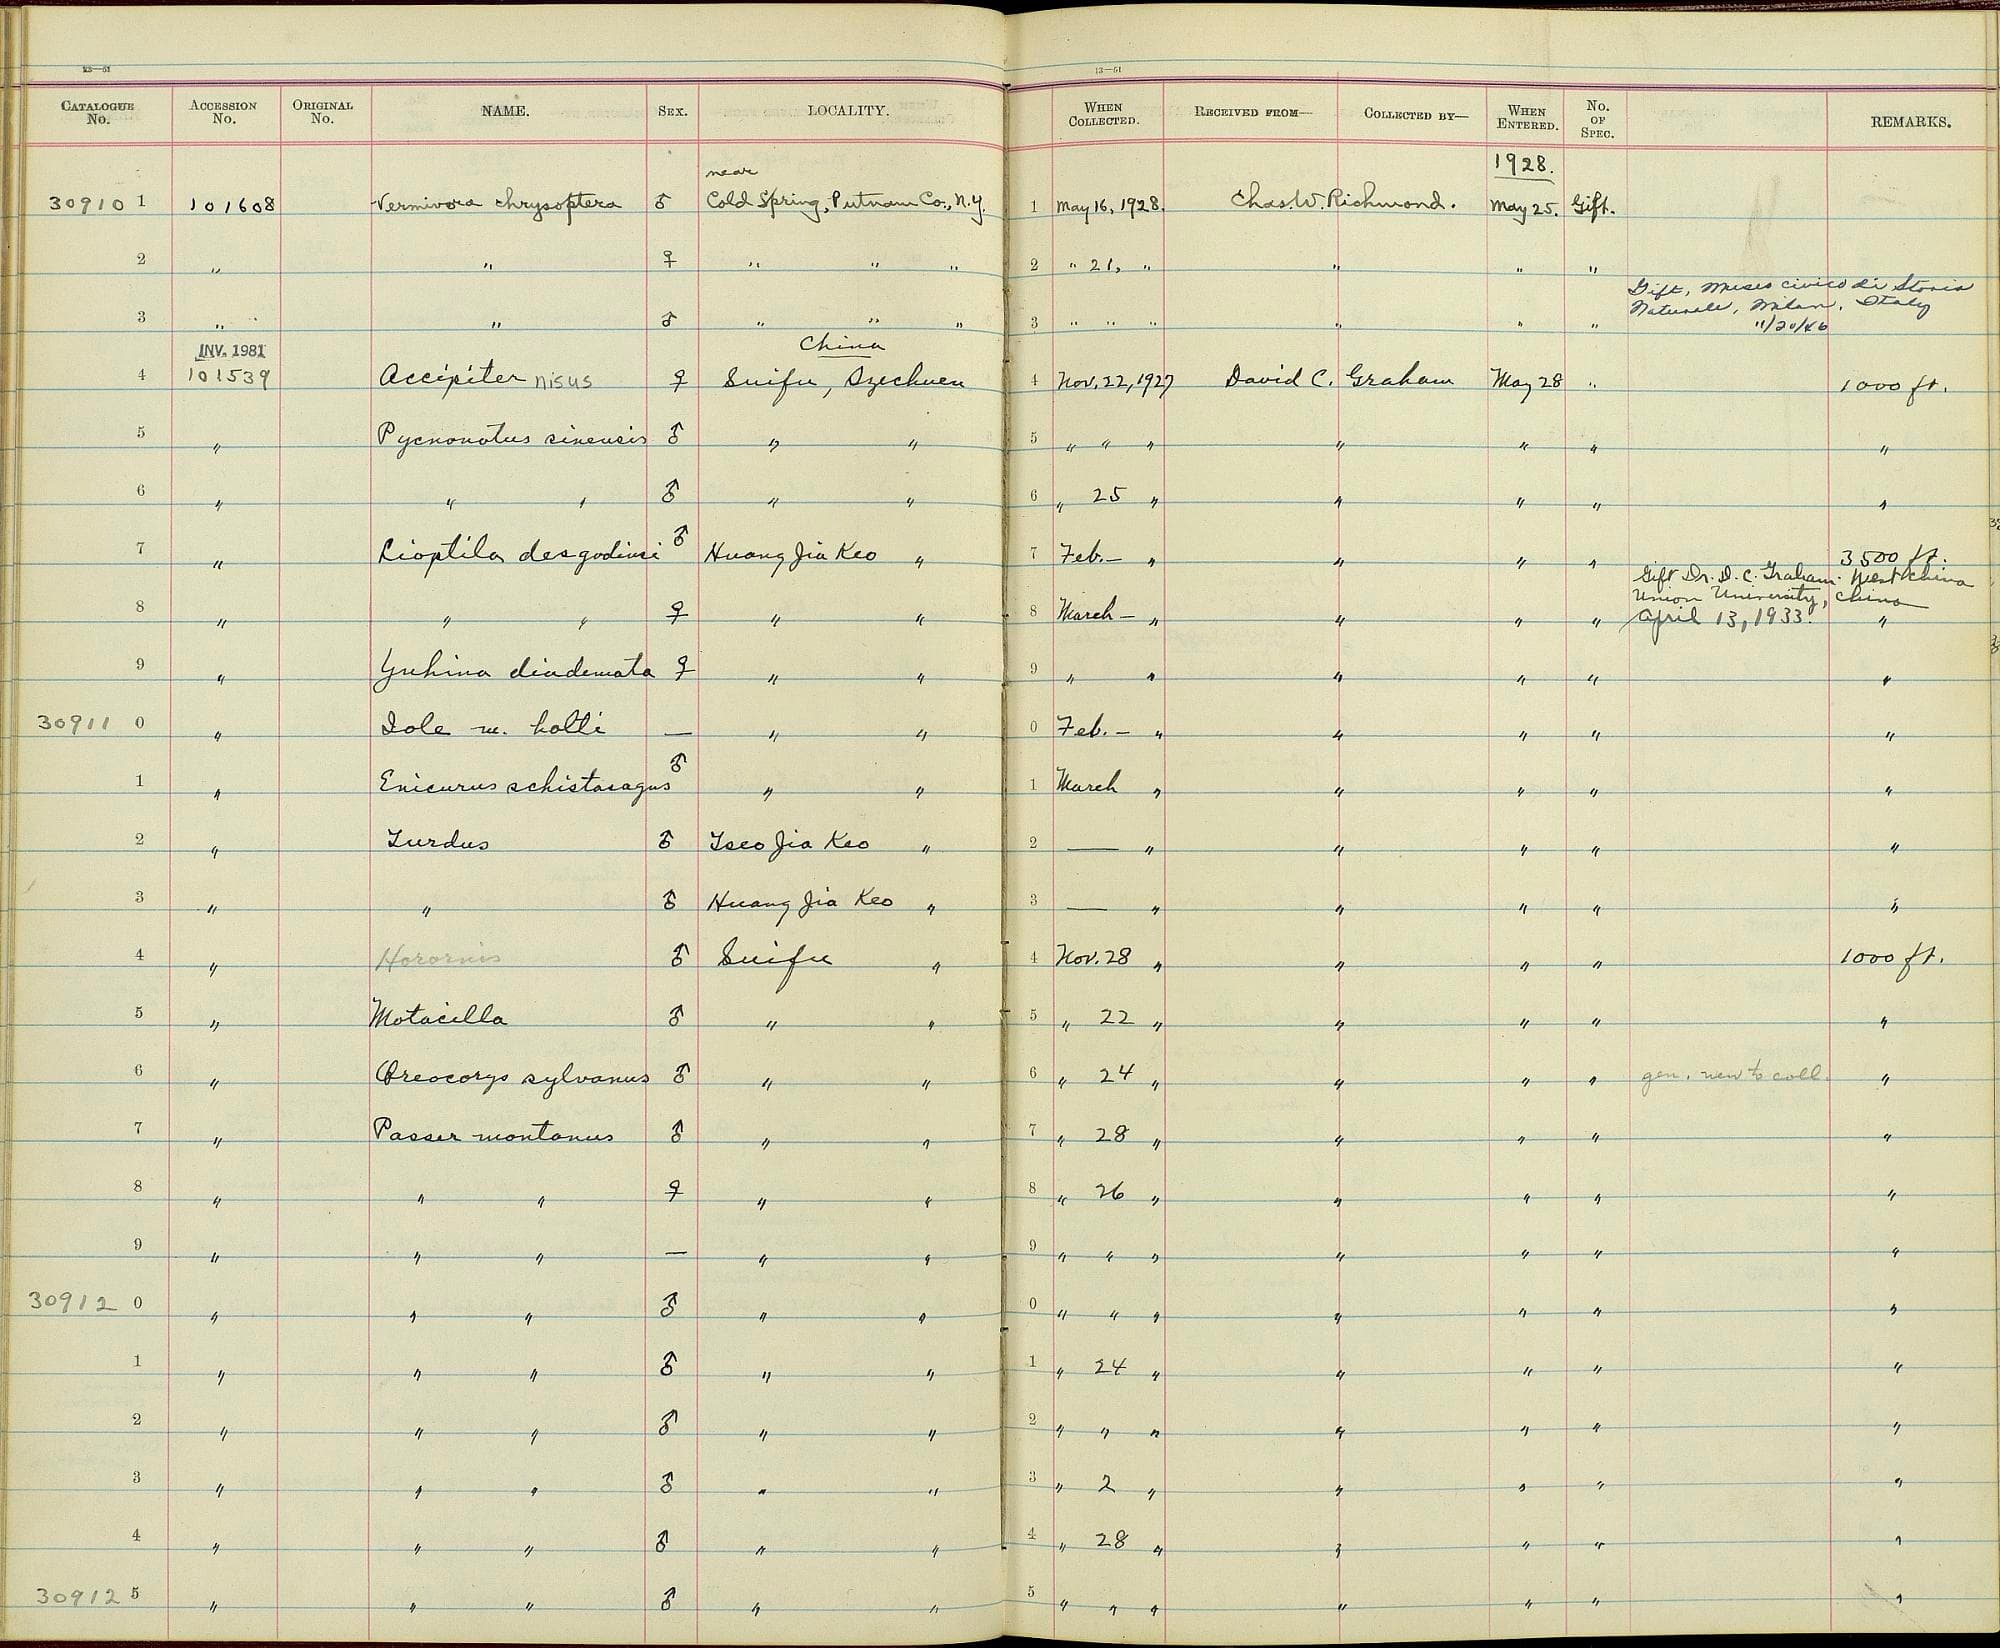 13—51
13—51
CATALOGUE No. ACCESSION No. ORIGINAL No. NAME. SEX. LOCALITY. WHEN COLLECTED. RECEIVED FROM— COLLECTED BY— WHEN ENTERED. NO. OF SPEC. REMARKS.
1928.
near
30910 1 101608 Vermivora chrysoptera ♂ Cold Spring, Putnam Co., N.Y. 1 May 16, 1928. Chas. W. Richmond. May 25. Gift.
2 " " ♀ " " " 2 " 21, " " " "
Gift, Museo civico di Storia
Naturale, Milan, Italy
11/20/46
3 " " ♂ " " " 3 " " " " " "
INV. 1981 China
4 101539 Accipiter nisus ♀ Suifu, Szechuen 4 Nov. 22, 1927 David C. Graham May 28 " 1000 ft.
5 " Pycnonotus sinensis ♂ " " 5 " " " " " " "
6 " " " ♂ " " 6 " 25 " " " " "
7 " Lioptila desgodinsi ♂ Huang Jia Keo " 7 Feb. — " " " " 3500 ft.
Gift Dr. D. C. Graham. West China
Union University, China
April 13, 1933.
8 " " " ♀ " " 8 March — " " " " "
9 " Yuhina diademata ♀ " " 9 " " " " " "
30911 0 " Iole m. holti — " " 0 Feb. — " " " " "
1 " Enicurus schistasagus ♂ " " 1 March " " " " "
2 " Turdus ♂ Tseo Jia Keo " 2 — " " " " "
3 " " ♂ Huang Jia Keo " 3 — " " " " "
4 " Horornis ♂ Suifu " 4 Nov. 28 " " " " 1000 ft.
5 " Motacilla ♂ " " 5 " 22 " " " " "
6 " Oreocorys sylvanus ♂ " " 6 " 24 " " " " gen. new to coll. "
7 " Passer montanus ♂ " " 7 " 28 " " " " "
8 " " " ♀ " " 8 " 26 " " " " "
9 " " " — " " 9 " " " " " " "
30912 0 " " " ♂ " " 0 " " " " " " "
1 " " " ♂ " " 1 " 24 " " " " "
2 " " " ♂ " " 2 " " " " " " "
3 " " " ♂ " " 3 " 2 " " " " "
4 " " " ♂ " " 4 " 28 " " " " "
30912 5 " " " ♂ " " 5 " " " " " " "